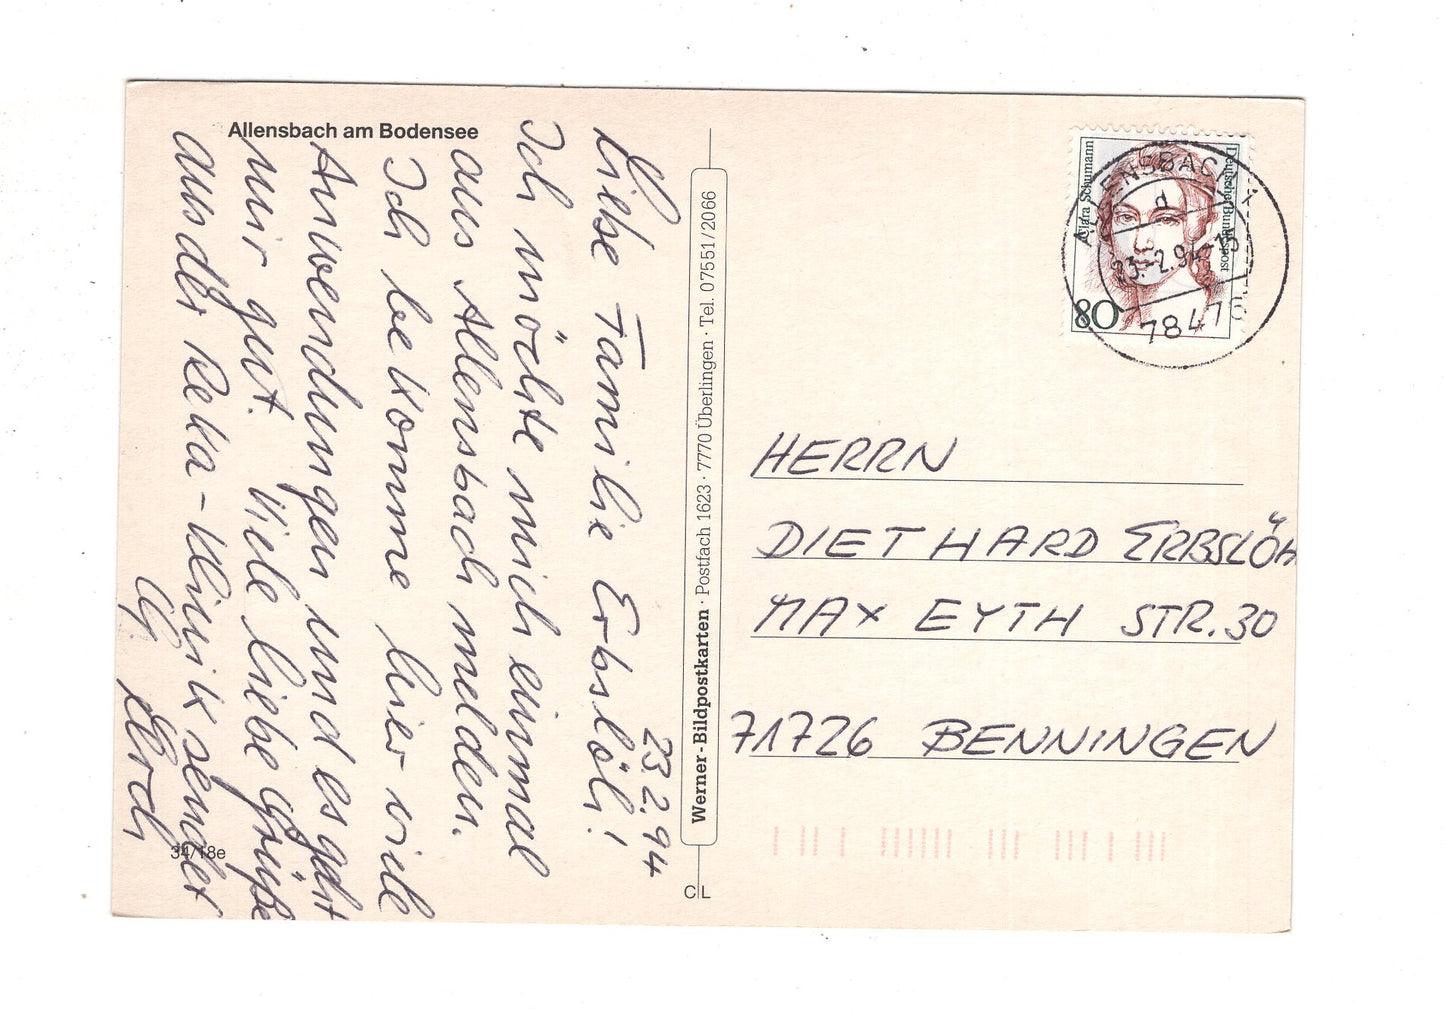 Allensbach am Bodensee
23.2.94
Liebe Familie Erbslöh!
Ich möchte mich einmal
aus Allensbach melden.
Ich bekomme hier viele
Anwendungen und es geht
mir gut. Viele liebe Grüße
aus der Reha-Klinik sendet
34/18e
Werner-Bildpostkarten · Postfach 1623 · 7770 Überlingen · Tel. 07551/2066
C L
Clara Schumann
Deutsche Bundespost
80
ALLENSBACH 1
d
23.-2.94-15
78476
HERRN
DIETHARD ERBSLÖH
MAX EYTH STR. 30
71726 BENNINGEN